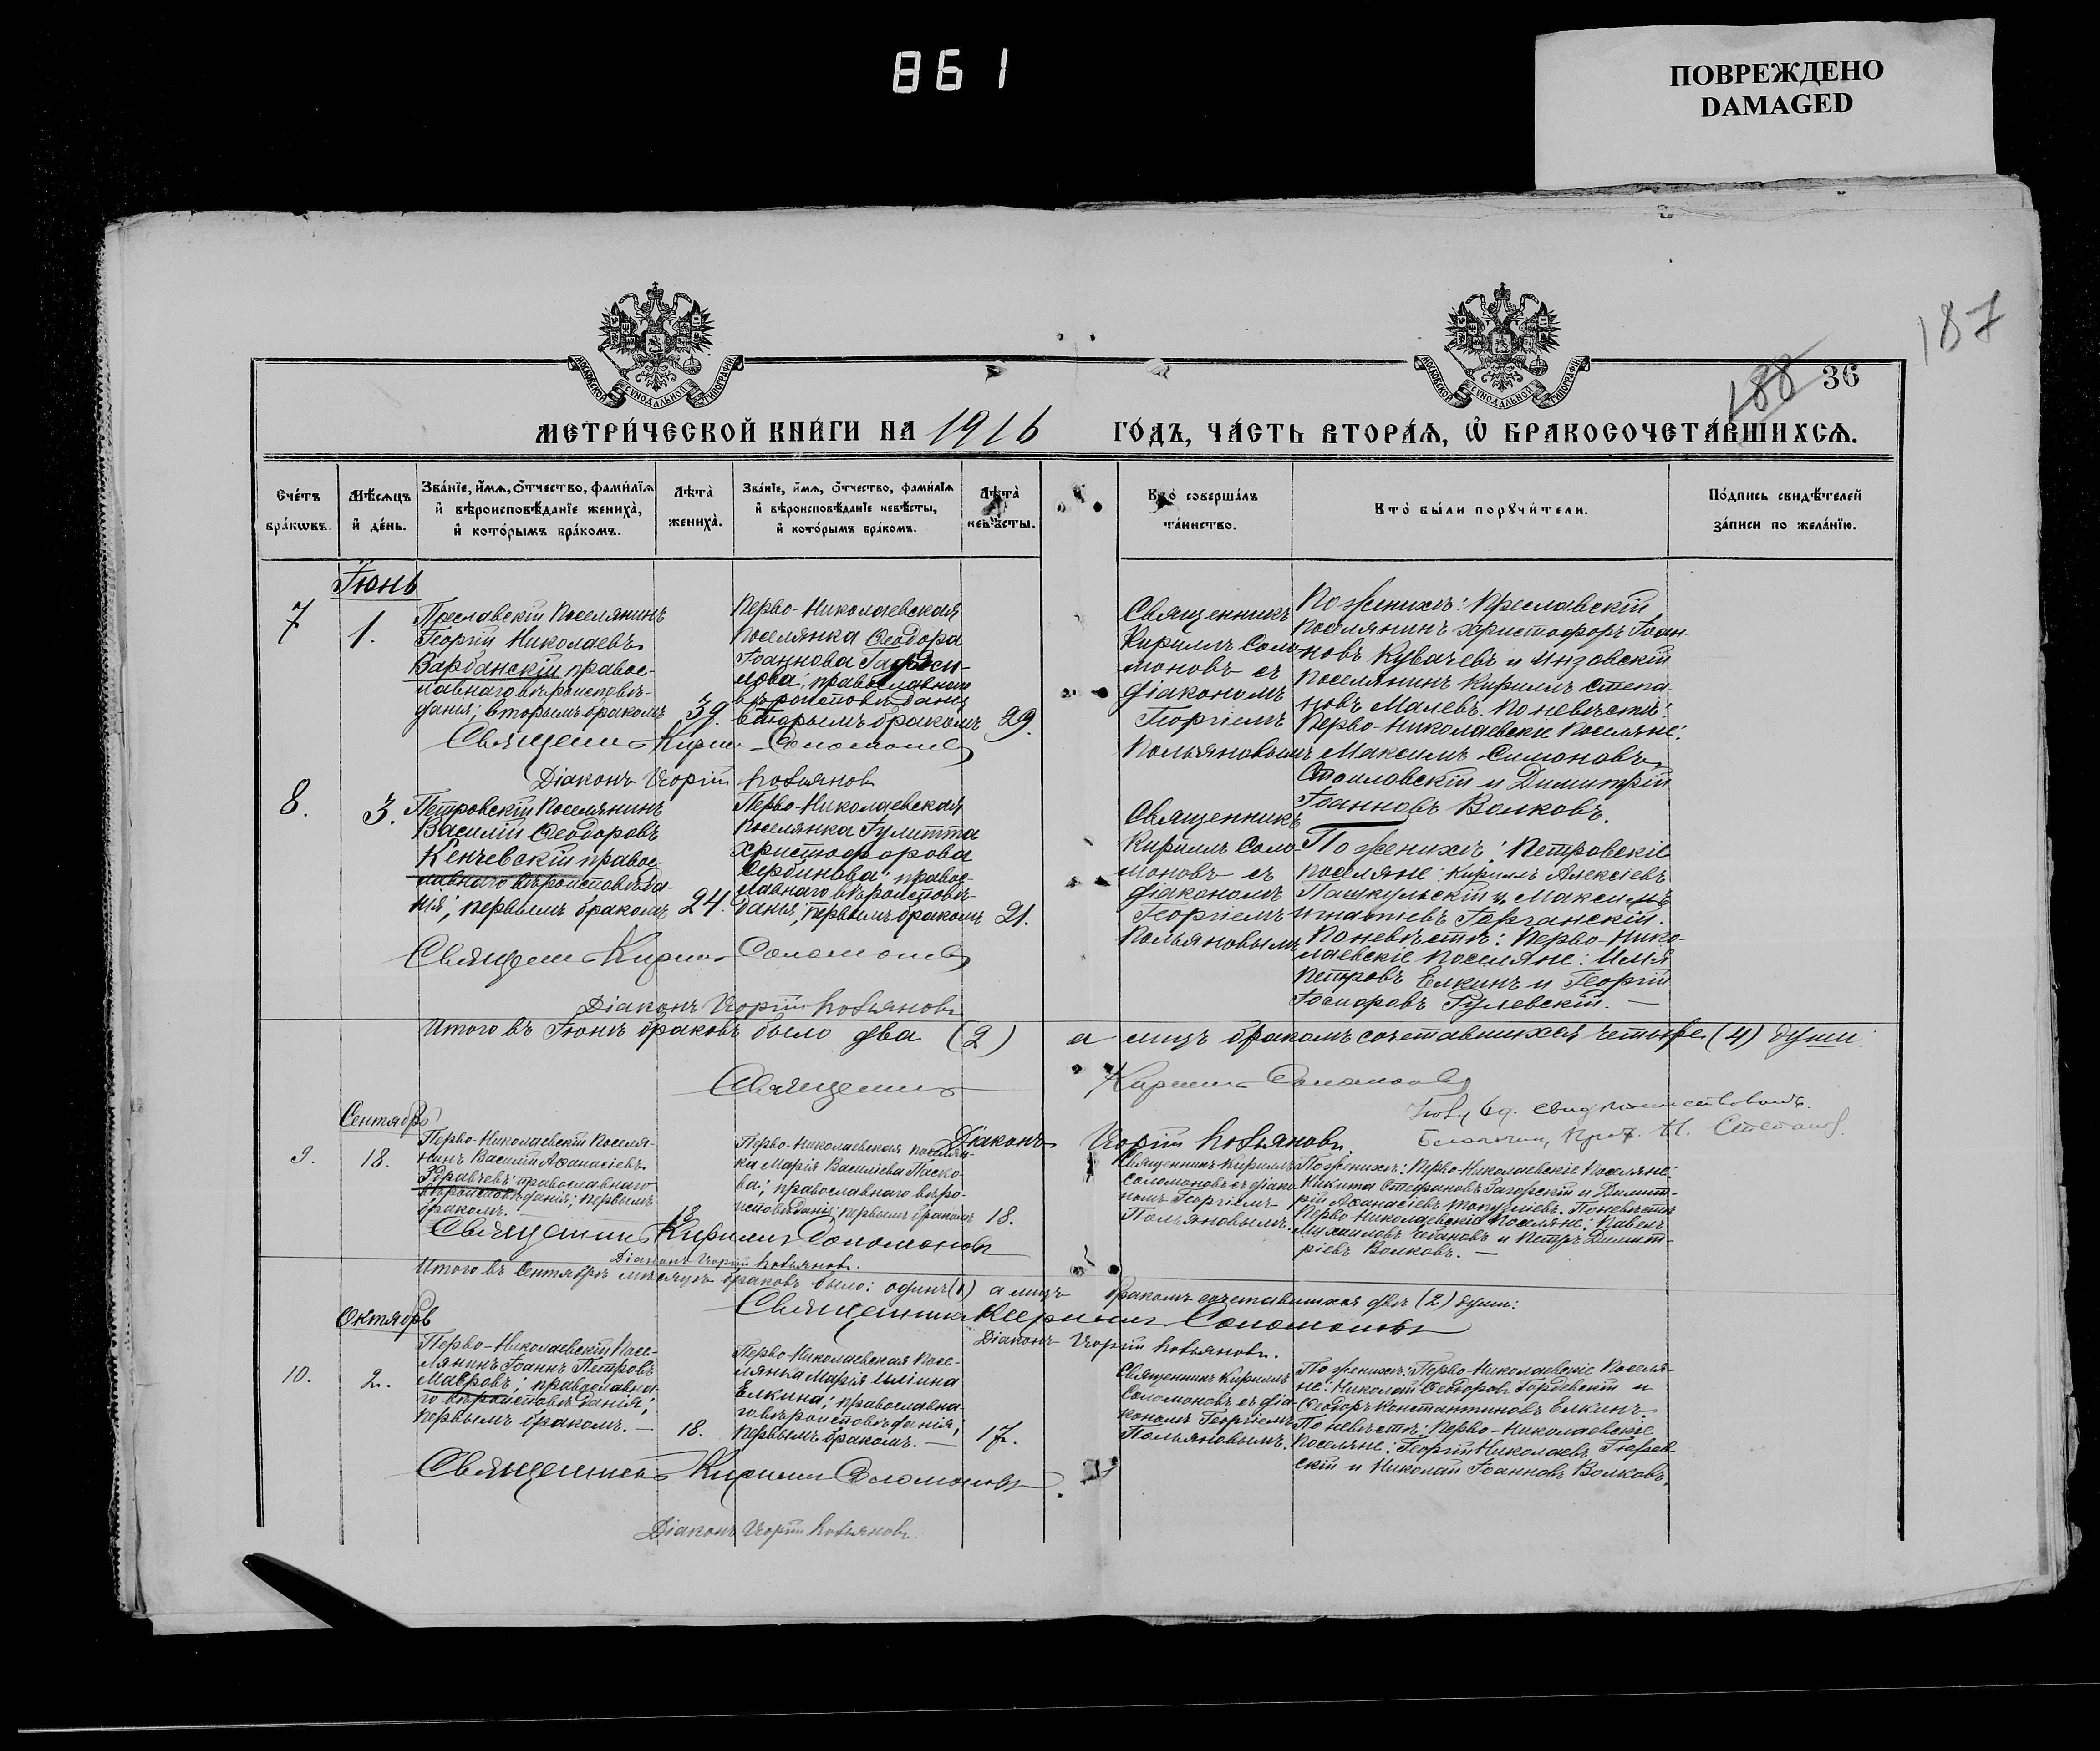 861
ПОВРЕЖДЕНО
DAMAGED
187
188
36
МОСКОВСКОЙ СѴНОДАЛЬНОЙ ТИПОГРАФІИ
МОСКОВСКОЙ СѴНОДАЛЬНОЙ ТИПОГРАФІИ
МЕТРИ́ЧЕСКОЙ КНИ́ГИ НА 1916 ГО́ДЪ, ЧА́СТЬ ВТОРА́Ѧ, Ѽ БРАКОСОЧЕТА́ВШИХСѦ.
Сче́тъ бра́кѡвъ.
Мѣ́сѧцъ и҆ де́нь.
Зва́нїе, и҆́мѧ, ѻ҆́тчество, фами́лїѧ и҆ вѣроисповѣ́данїе жениха̀, и҆ кото́рымъ бра́комъ.
Лѣта̀ жениха̀.
Зва́нїе, и҆́мѧ, ѻ҆́тчество, фами́лїѧ и҆ вѣроисповѣ́данїе невѣ́сты, и҆ кото́рымъ бра́комъ.
Лѣта̀ невѣ́сты.
Кто̀ соверша́лъ та́инство.
Кто̀ бы́ли порꙋчи́тели.
По́дпись свидѣ́телей за́писи по жела́нїю.
Іюнь
7
1.
Преславскій поселянинъ
Георгій Николаевъ
Варбанскій правос-
лавнаго вѣроисповѣ-
данія; вторымъ бракомъ
39.
Перво-Николаевская
поселянка Ѳеодора
Іоаннова
православнаго
вѣроисповѣданія
вторымъ бракомъ
29.
Священникъ
Кириллъ Соло-
моновъ съ
діакономъ
Георгіемъ
Польяновымъ
По женихѣ: Преславскій
поселянинъ Христофоръ Іоан-
новъ Кувачевъ и Инзовскій
поселянинъ Кириллъ Степа-
новъ Малевъ. По невѣстѣ:
Перво-Николаевскіе поселяне:
Максимъ Симоновъ
Стоиловскій и Димитрій
Іоанновъ Волковъ.
Священникъ Кириллъ Соломоновъ
Діаконъ Георгій Польяновъ
8.
3.
Петровскій поселянинъ
Василій Ѳеодоровъ
Кенчевскій правос-
лавнаго вѣроисповѣда-
нія; первымъ бракомъ
24.
Перво-Николаевская
поселянка Іулитта
Христофорова
Сербинова; правос-
лавнаго вѣроисповѣ-
данія; первымъ бракомъ
21.
Священникъ
Кириллъ Соло-
моновъ съ
діакономъ
Георгіемъ
Польяновымъ
По женихѣ: Петровскіе
поселяне Кириллъ Алексіевъ
Пашкульскій и Максимъ
Игнатіевъ Горганскій.
По невѣстѣ: Перво-Нико-
лаевскіе поселяне: Илія
Петровъ Елкинъ и Георгій
Іосифовъ Гулевскій. —
Священникъ Кириллъ Соломоновъ
Діаконъ Георгій Польяновъ
Итого въ Іюнѣ браковъ было два (2) а лицъ бракомъ сочетавшихся четыре (4) души.
Священникъ Кириллъ Соломоновъ
Діаконъ Георгій Польяновъ
Благочин,
Сентябрь
9.
18.
Перво-Николаевскій поселя-
нинъ Василій Аѳанасіевъ
Здравчевъ; православнаго
вѣроисповѣданія; первымъ
бракомъ.
18.
Перво-Николаевская поселян-
ка Марія Василіева Паско-
ва; православнаго вѣро-
исповѣданія; первымъ бракомъ
18.
Священникъ Кириллъ
Соломоновъ съ діако-
номъ Георгіемъ
Польяновымъ.
По женихѣ: Перво-Николаевскіе поселяне:
Никита Стефановъ Загорскій и Димит-
рій Аѳанасіевъ Топузліевъ. По невѣстѣ
Перво-Николаевскіе поселяне: Павелъ
Михаиловъ Чебановъ и Петръ Димит-
ріевъ Волковъ. —
Священникъ Кириллъ Соломоновъ
Діаконъ Георгій Польяновъ.
Итого въ Сентябрѣ мѣсяцѣ браковъ было: одинъ (1) а лицъ бракомъ сочетавшихся двѣ (2) души:
Священникъ Кириллъ Соломоновъ
Діаконъ Георгій Польяновъ.
Октябрь
10.
2.
Перво-Николаевскій посе-
лянинъ Іоаннъ Петровъ
Мавровъ; православна-
го вѣроисповѣданія;
первымъ бракомъ. —
18.
Перво-Николаевская посе-
лянка Марія Иліина
Елкина; православна-
го вѣроисповѣданія;
первымъ бракомъ. —
17.
Священникъ Кириллъ
Соломоновъ съ діа-
кономъ Георгіемъ
Польяновымъ.
По женихѣ: Перво-Николаевскіе поселя-
не: Николай Ѳеодоровъ Гордевскій и
Ѳеодоръ Константиновъ Елкинъ.
По невѣстѣ: Перво-Николаевскіе
поселяне: Георгій Николаевъ
скій и Николай Іоанновъ Волковъ.
Священникъ Кириллъ Соломоновъ
Діаконъ Георгій Польяновъ.